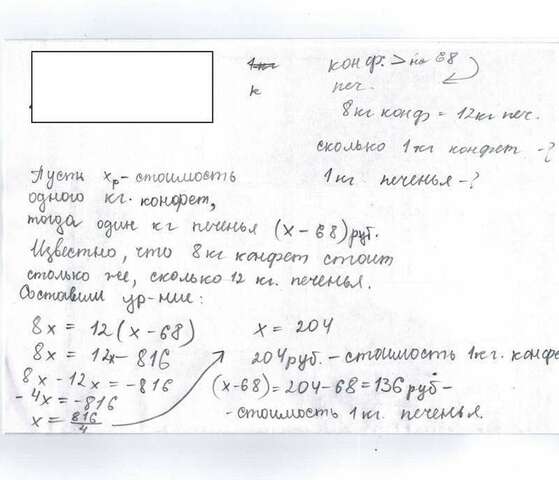 1 кг конф. > на 68
к печ.
8 кг конф = 12 кг печ.
сколько 1 кг конфет - ?
1 кг. печенья - ?
Пусть x р - стоимость
одного кг. конфет,
тогда один кг печенья (x - 68) руб.
Известно, что 8 кг конфет стоит
столько же, сколько 12 кг. печенья.
Составим ур-ние:
8x = 12(x - 68)
8x = 12x - 816
8x - 12x = -816
- 4x = -816
x = 816/4
x = 204
204 руб. - стоимость 1 кг. конфе
(x-68) = 204 - 68 = 136 руб -
- стоимость 1 кг. печенья.